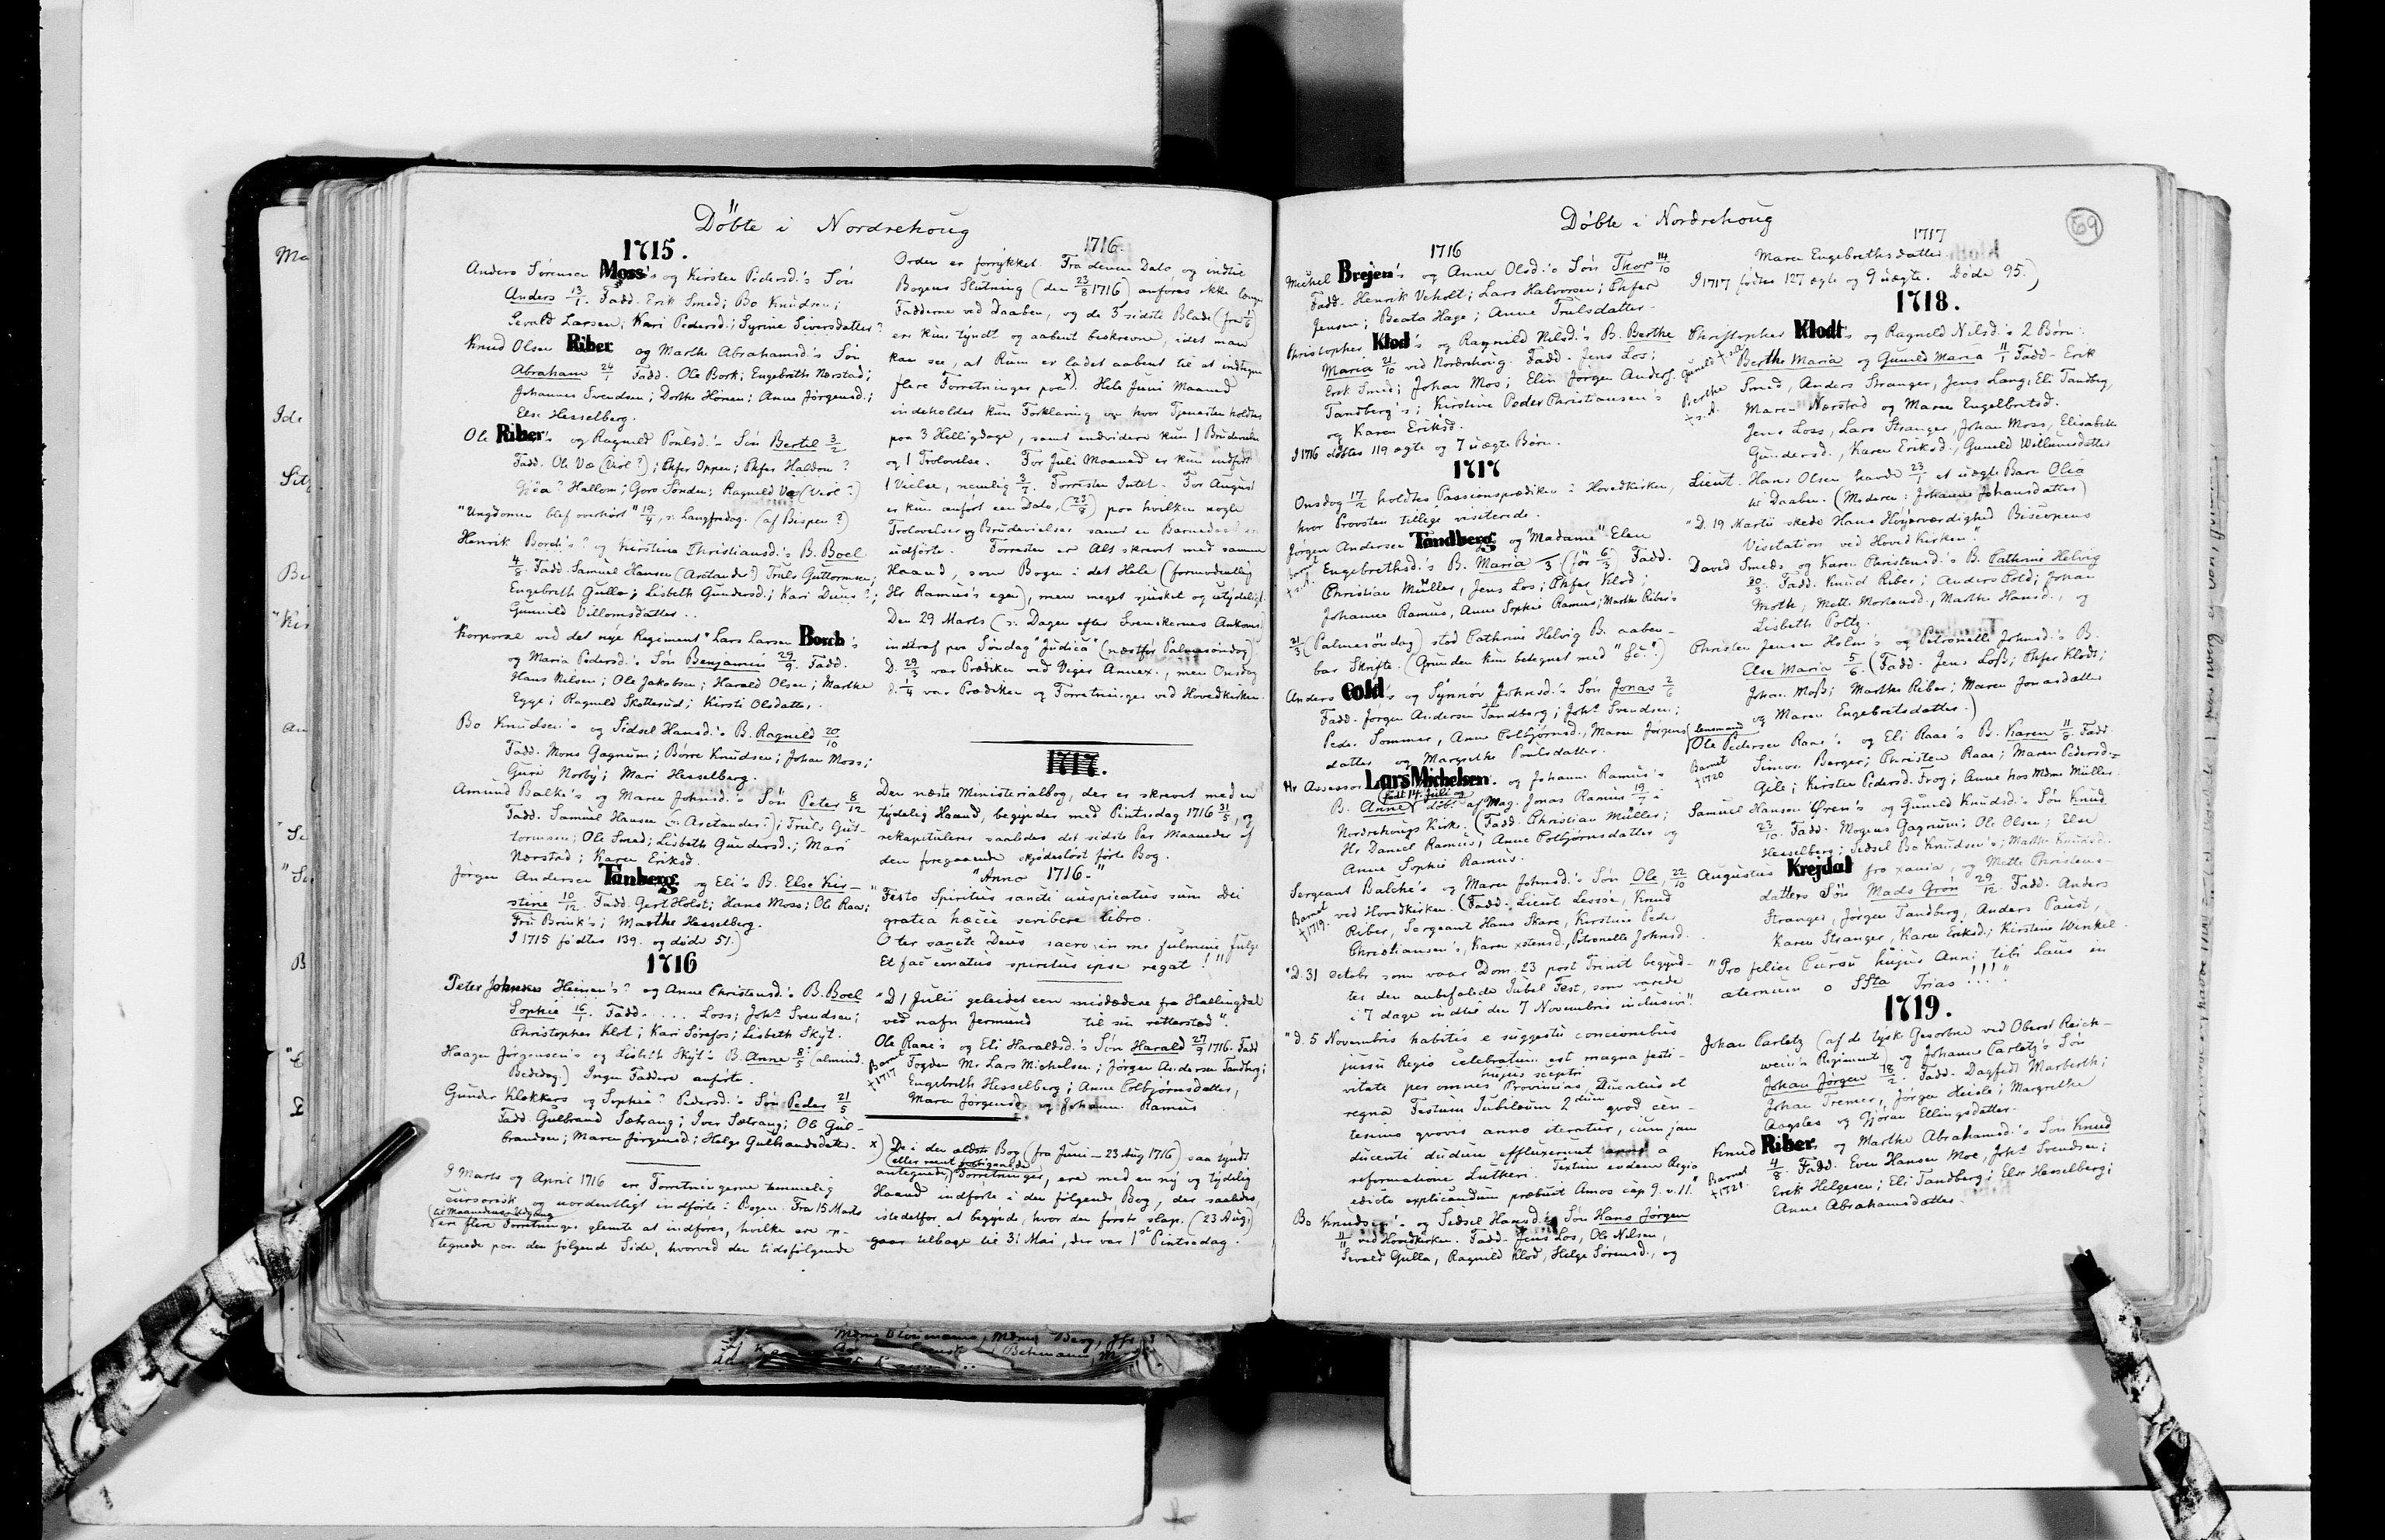 Döbte i Nordrehoug
1715.
Anders Sörensen Moss's og Kirsten Pedersd.'s Sön
Anders 13/1. Fadd. Erik Smed; Bo Knudsen;
Sevald Larsen; Kari Pedersd.; Syrine Siversdatter?
Knud Olsen Riber og Marthe Abrahamsd.'s Sön
Abraham 24/1 Fadd. Ole Bork; Engebreth Nærstad;
Johannes Svendsen; Dorthe Hönen; Anne Jörgensd.;
Else Hesselberg.
Ole Riber's og Ragnild Poulsd.'s Sön Bertel 3/2
Fadd. Ole Væ (Viol?); Chfer Oppen; Chfer Haldom?
Hallom; Goro Sönder; Ragnild Væ (Viol?)
"Ungdomen blef overhört" 19/4, ɔ: Langfredag. (af Bispen?)
Henrik Borch's? og Kirstine Christiansd.'s B. Boel
4/8. Fadd. Samuel Hansen (Asitander?) Truls Guttormsen;
Engebreth Gulle; Lisbeth Gundersd.; Kari Duus?;
Gunnild Villomsdatter.
"Korporal ved det nye Regiment" Lars Larsen Borch's
og Maria Pedersd.'s Sön Benjamin 29/9. Fadd.
Hans Nilsen; Ole Jakobsen; Harald Olsen; Marthe
Egge; Ragnild Skotterud; Kirsti Olsdatter.
Bo Knudsen's og Sidsel Hansd.'s B. Ragnild 20/10
Fadd. Mons Gagnum; Börre Knudsen; Johan Moss;
Guri Norby; Mari Hesselberg.
Amund Balke's og Maren Johnsd.'s Sön Peter 8/12
Fadd. Samuel Hansen (ɔ: Asitander?); Truls Gut-
tormsen; Ole Smed; Lisbeth Gundersd.; Mari
Nærstad; Karen Eriksd.
Jörgen Andersen Tanberg og Eli's B. Else Kir-
stine 10/12. Fadd. Gert Holst; Hans Moss; Ole Raa;
Fru Brink's; Marthe Hesselberg.
I 1715 födtes 139. og döde 51.)
1716
Peter Johnsen Heinen's? og Anne Christensd.'s B. Boel
Sophie 16/1. Fadd. .... Loss; Johs Svendsen;
Christopher Klot; Kari Sörefos; Lisbeth Skyt.
Haagen Jörgensen's og Lisbeth Skyt's B. Anne 8/5 (almind.
Bededag.) Ingen Faddere anförte.
Gunder Klokkers og Sophie? Pedersd.'s Sön Peder 21/5
Fadd. Gulbrand Sætrang; Iver Sætrang; Ole Gul-
brandsen; Maren Jörgensd.; Helge Gulbrandsdatter.
I Marts og April 1716 ere Forretningerne temmelig
cursorisk og uordentligt indförte i Bogen. Fra 15 Marts
(til Maanedens Udgang
ere flere Forretninger glemte at indföres, hvilke ere op-
tegnede paa den fölgende Side, hvorved den tidsfölgende
1716.
Orden er forrykket. Fra denne Dato og indtil
Bogens Slutning (den 23/8 1716) anföres ikke længer
Fadderne ved Daaben, og de 3 sidste Blade (fra 1/6)
ere kun tyndt og aabent beskrevne, idet man
kan see, at Rum er ladet aabent til at indtegne
flere Forretninger paa x). Hele Juni Maaned
indeholder kun Forklaring over hvor Tjenesten holdtes
paa 3 Helligdage, samt endvidere kun 1 Brudevielse
og 1 Trolovelse. For Juli Maaned er kun indfört
1 Vielse, nemlig 3/7. Forresten Intet. For August
er kun anfört een Dato, (23/8) paa hvilken nogle
Trolovelser og Brudevielser samt en Barnedaab ere
indförte. Forresten er Alt skrevet med samme
Haand, som Bogen i det Hele (formodentlig
Hr Ramus's egen), men meget sjusket og utydeligt.
Den 29 Marts (ɔ: Dagen efter Svenskernes Ankomst)
indtraf paa Söndag "Judica" (næstför Palmesöndag).
D. 29/3 var Prædiken ved Viger Annex., men Onsdag
d. 1/4 var Prædiken og Forretninger ved Hovedkirken.
1717.
Den næste Ministerialbog, der er skrevet med en
tydelig Haand, begynder med Pintsdag 1716 31/5, og
rekapitulerer saaledes det sidste Par Maaneder af
den foregaaende skjödeslöst förte Bog.
"Anno 1716."
"Festo Spiritus sancti auspicatus sum Dei
gratia hæcce scribere libro.
O ter sancte Deus sacro in me fulmine fulge
Et fac conatus spiritus ipse regat!"
"D 1 Julii geleidet een misdædere fra Hallingdal
ved nafn Jermund til sin rettersted".
Ole Raae's og Eli Haraldsd.'s Sön Harald 27/9 1716. Fadd
Barnet †1717
Fogden Mr Lars Michelsen; Jörgen Andersen Tandberg;
Engebreth Hesselberg; Anne Colbjörnsdatter,
Maren Jörgensd. og Johanne Ramus
x) De i den ældste Bog (fra Juni - 23 Aug 1716) saa tyndt
(eller rent forbigaaede
antegnede) Forretninger, ere med en ny og tydelig
Haand indförte i den fölgende Bog, der saaledes
istedetfor at begynde, hvor den förste slap. (23 Aug.)
gaar tilbage til 31 Mai, der var 1st Pintsedag.
Döbte i Nordrehoug
69
1716
Michel Brejen's og Anne Olsd.'s Sön Thor 14/10
Fadd. Henrik Veholt; Lars Halvorsen; Chfer
Jensen; Beata Hage; Anne Trulsdatter.
Christopher Klod's og Ragnild Nilsd.'s B. Berthe
Maria 21/10 ved Nordrehoug. Fadd. Jens Los;
Erik Smed; Johan Mos; Elin Jörgen Anders.
Tandberg's; Kirstine Peder Christiansen's
og Karen Eriksd.
I 1716 döbtes 119 ægte og 7 uægte Börn.
1717
Onsdag 17/2 holdtes Passionsprædiken i Hovedkirken,
hvor Provsten tillige visiterede.
Jörgen Andersen Tandberg og "Madame" Elen
Engebrethsd.'s B. Maria /3 (för 6/3) Fadd.
Barnet † s.d.
Christian Müller, Jens Los; Chfer Klod;
Johanne Ramus, Anne Sophie Ramus; Marthe Riber's
21/3 (Palmesöndag) stod Cathrine Helvig B. aaben-
bar Skrifte. (Grunden kun betegnet med "&c.".)
Anders Cold's og Synnöv Johnsd.'s Sön Jonas 2/6
Fadd. Jörgen Andersen Tandberg; Johs Svendsen;
Peder Sommer, Anne Colbjörnsd., Maren Jörgens-
datter og Margrethe Poulsdatter.
Hr Assessor Lars Michelsen. og Johanne Ramus's
(födt 14 Juli og
B. Anne döbt af Mag. Jonas Ramus 19/7 i
Nordrehougs Kirke. (Fadd. Christian Müller;
Hr Daniel Ramus; Anne Colbjörnsdatter og
Anne Sophie Ramus.
Sergeant Balche's og Maren Johnsd.'s Sön Ole, 22/10
Barnet †1719.
ved Hovedkirken. (Fadd. Lieut Lessöe, Knud
Riber, Sergeant Hans Skare, Kirstine Peder
Christiansen's, Karen xstensd., Petronelle Johnsd.
"D. 31 octobr som vaar Dom. 23 post Trinit begynd-
tes den anbefalede Jubel Fest, som varede
i 7 dage indtil den 7 Novembris inclusive".
"d. 5 Novembris habitis e suggestu concionibus
jussu Regio celebratum est magna festi-
hujus sceptri
vitate per omnes Provincias, Ducatus et
regna Festum Jubilæum 2dum qvod cen-
tesimo qvovis anno iteratur, cum jam
ducenti diudum effluxerunt anni a
reformatione Lutheri. Textum eodem Regio
edicto explicandum præbuit Amos cap 9. v. 11."
Bo Knudsen's og Sidsel Hansd.'s Sön Hans Jörgen
11/11 ved Hovedkirken. Fadd. Jens Los, Ole Nilsen,
Sevald Gulla, Ragnild Klod, Helge Sörensd., og
1717
Maren Engebrethsdatter.
I 1717 födtes 127 ægte og 9 uægte. Döde 95.)
1718.
Christopher Klodt's og Ragnild Nilsd.'s 2 Börn:
Gunild † s.d.
Berthe Maria og Gunild Maria 11/1 Fadd. Erik
Berthe † s.d.
Smed, Anders Stranger, Jens Lang, Eli Tandberg,
Maren Nærstad og Maren Engelbretsd.
Jens Loss, Lars Stranger, Johan Moss, Elisabeth
Gundersd., Karen Eriksd., Gunild Willumsdatter
Lieut. Hans Olsen havde 23/1 et uægte Barn Olia
til Daaben. (Moderen: Johanne Johansdatter)
"D. 19 Martii skede Hans Höyærværdighed Biscopens
Visitation ved Hoved Kirken."
David Smeds og Karen Christensd.'s B. Cathrine Helvig
20/3. Fadd. Knud Riber; Anders Cold; Johan
Moth, Mette Mortensd., Marthe Hansd., og
Lisbeth Poltz.
Christen Jensen Holm's og Petronelle Johnsd.'s B.
Else Maria 5/6. (Fadd. Jens Loß; Chfer Klodt;
Johan Moß; Marthe Riber; Maren Jonasdatter
og Maren Engebretsdatter.)
(Lensmand
Ole Pedersen Raae's og Eli Raae's B. Karen 11/9. Fadd.
Barnet †1720
Simon Berger; Christen Raae; Maren Pedersd.
Gile; Kirsten Pedersd. Frog; Anne hos Mdme Müller.
Samuel Hansen Ören's og Gunild Knudsd.'s Sön Knud
23/10. Fadd. Mogens Gagnum; Ole Olsen; Else
Hesselberg; Sidsel Bo Knudsen's; Mathe Knudsd.
Augustus Krejdal fra xania, og Mette Christens-
datters Sön Mads Grön 29/12. Fadd. Anders
Stranger, Jörgen Tandberg, Anders Paust,
Karen Stranger, Karen Eriksd., Kirstine Winkel.
"Pro felice Cursu hujus Anni tibi Laus in
æternum o SSta Trias!!!"
1719.
Johan Carletz (af de tysk Gevorbne ved Oberst Reich-
wein's Regiment) og Johanne Carletz's Sön
Johan Jörgen 18/2. Fadd. Dagfedt Marberth;
Johan Tremer, Jörgen Heisle; Margrethe
Aagstes og Gjöran Ellingsdatter.
Knud Riber og Marthe Abrahamsd.'s Sön Knud
Barnet †1721.
4/8. Fadd. Even Hansen Moe, Johs Svendsen;
Erik Helgesen; Eli Tandberg; Else Hesselberg;
Anne Abrahamsdatter.